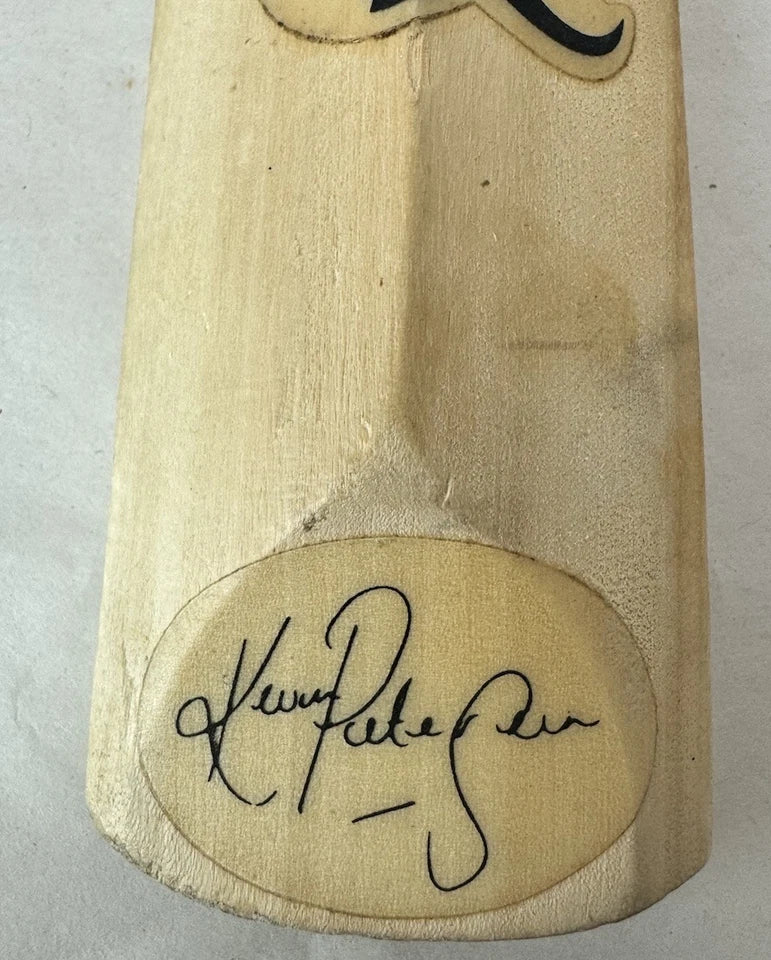 Kevin Pietersen